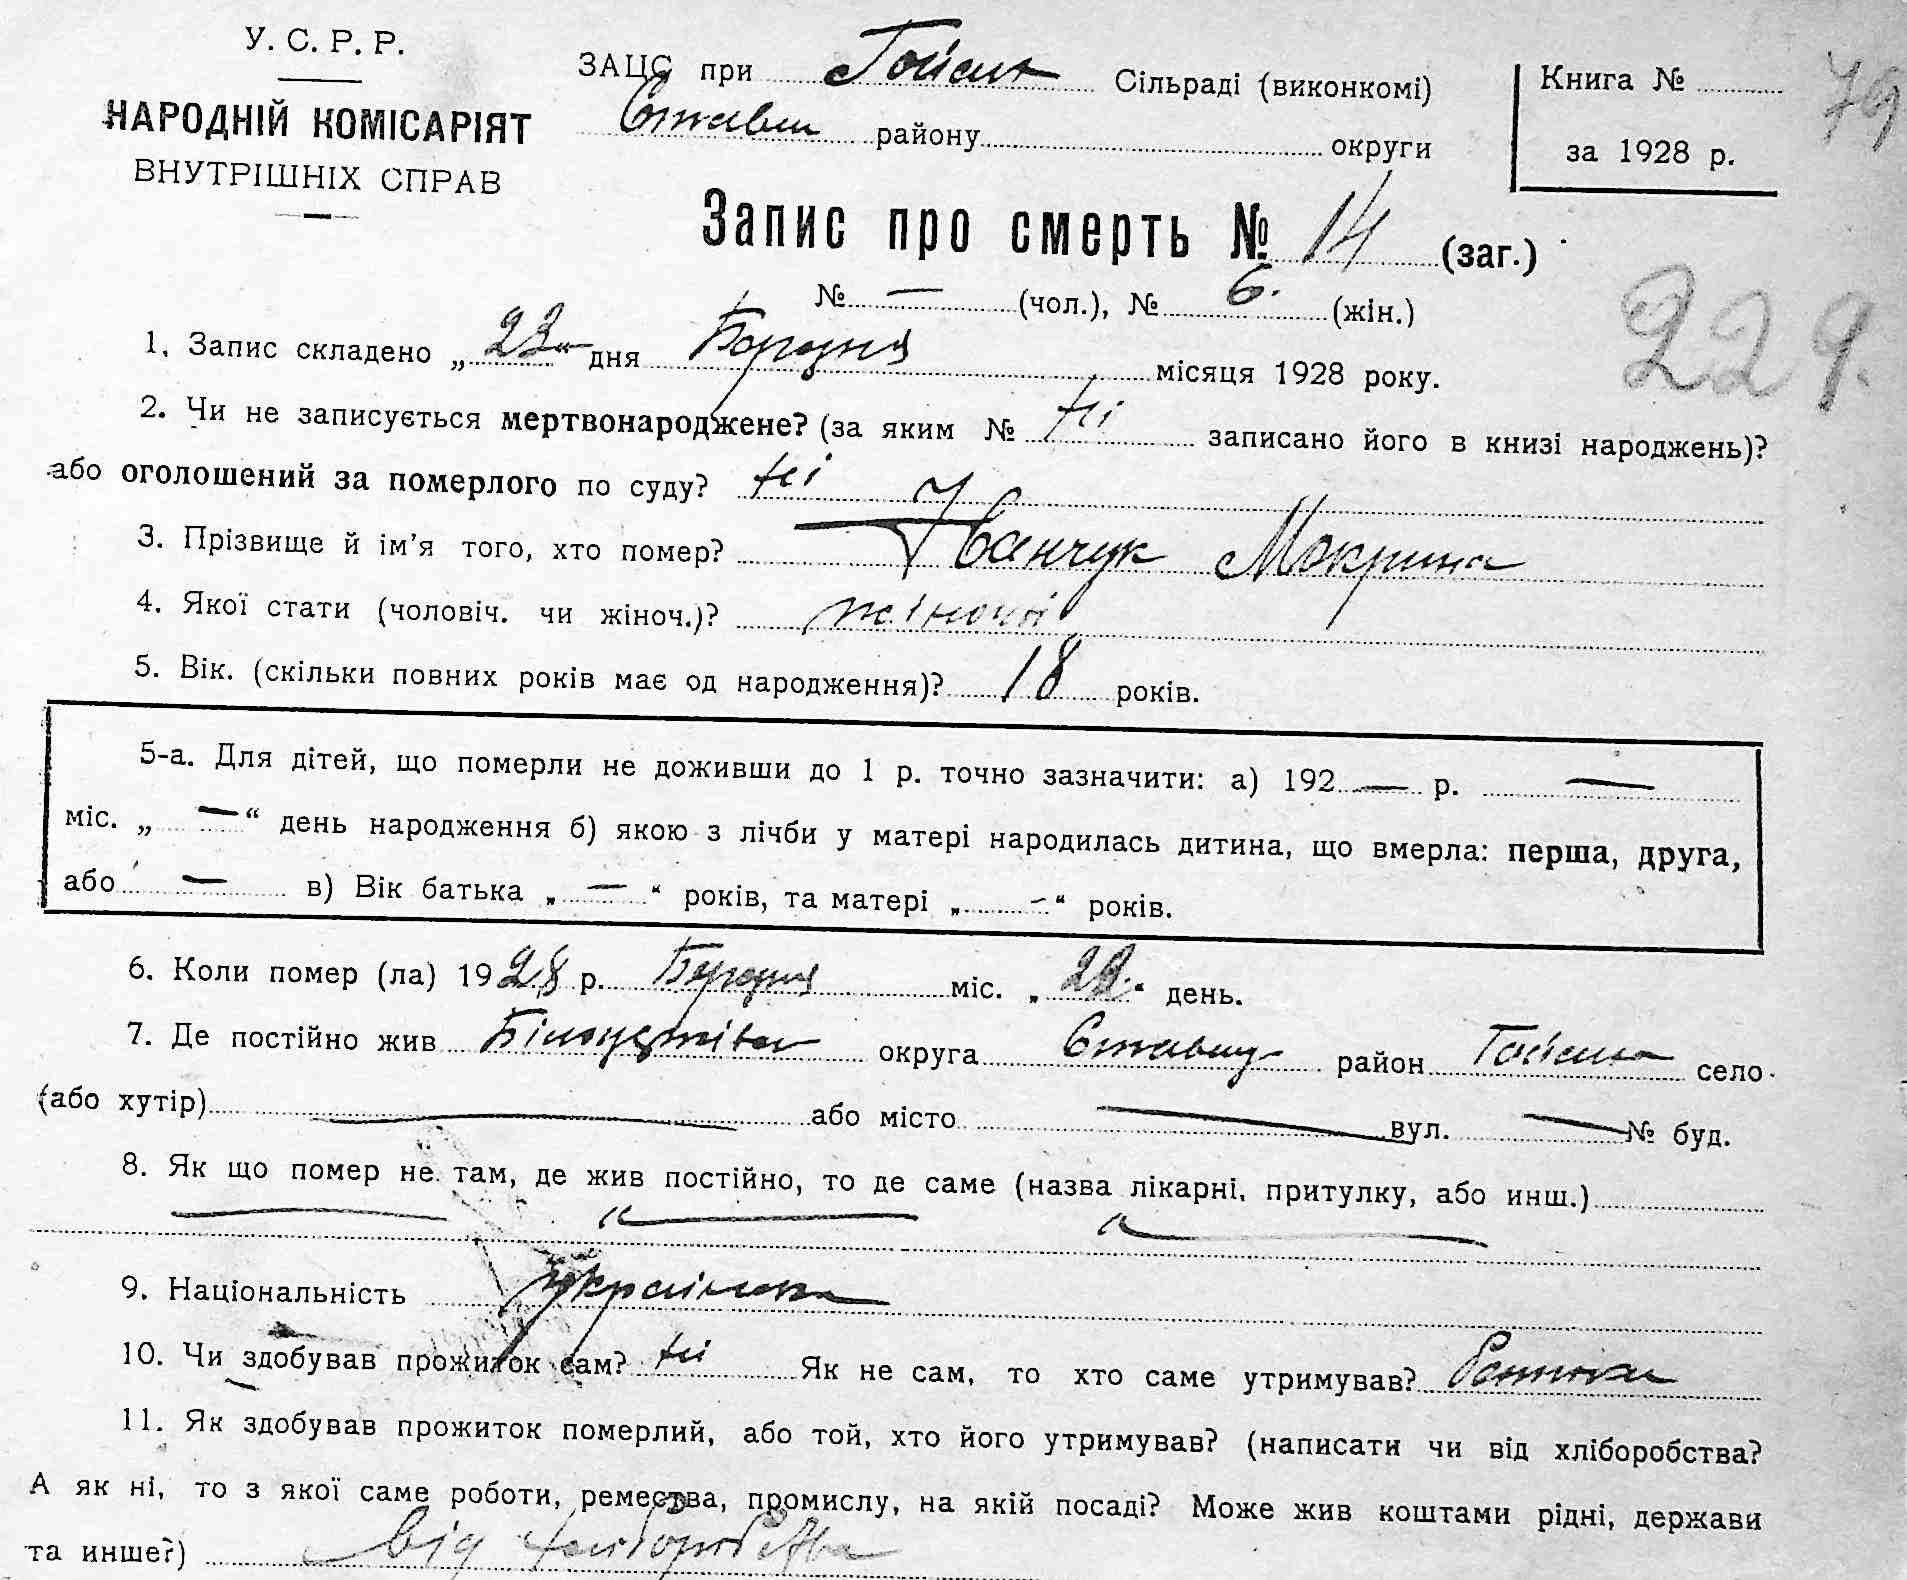 У. С. Р. Р.
НАРОДНІЙ КОМІСАРІЯТ
ВНУТРІШНІХ СПРАВ
ЗАЦС при Сільраді (виконкомі)
Ставищ району округи
Книга №
за 1928 р.
79
Запис про смерть № 14 (заг.)
№ — (чол.), № 6. (жін.)
229.
1. Запис складено „ 23 “ дня Березня місяця 1928 року.
2. Чи не записується мертвонароджене? (за яким № ні записано його в книзі народжень)?
або оголошений за померлого по суду? ні
3. Прізвище й ім'я того, хто помер? Іванчук Мокрина
4. Якої стати (чоловіч. чи жіноч.)? жіночоі
5. Вік. (скільки повних років має од народження)? 18 років.
5-а. Для дітей, що померли не доживши до 1 р. точно зазначити: а) 192 — р. —
міс. „ — “ день народження б) якою з лічби у матері народилась дитина, що вмерла: перша, друга,
або — в) Вік батька „ — “ років, та матері „ — “ років.
6. Коли помер (ла) 1928 р. Березня міс. „ 22 “ день.
7. Де постійно жив округа район село
(або хутір) — або місто — вул. — № буд.
8. Як що помер не там, де жив постійно, то де саме (назва лікарні, притулку, або инш.)
9. Національність українка
10. Чи здобував прожиток сам? ні Як не сам, то хто саме утримував?
11. Як здобував прожиток померлий, або той, хто його утримував? (написати чи від хліборобства?
А як ні, то з якої саме роботи, ремества, промислу, на якій посаді? Може жив коштами рідні, держави
та инше?) від хліборобства